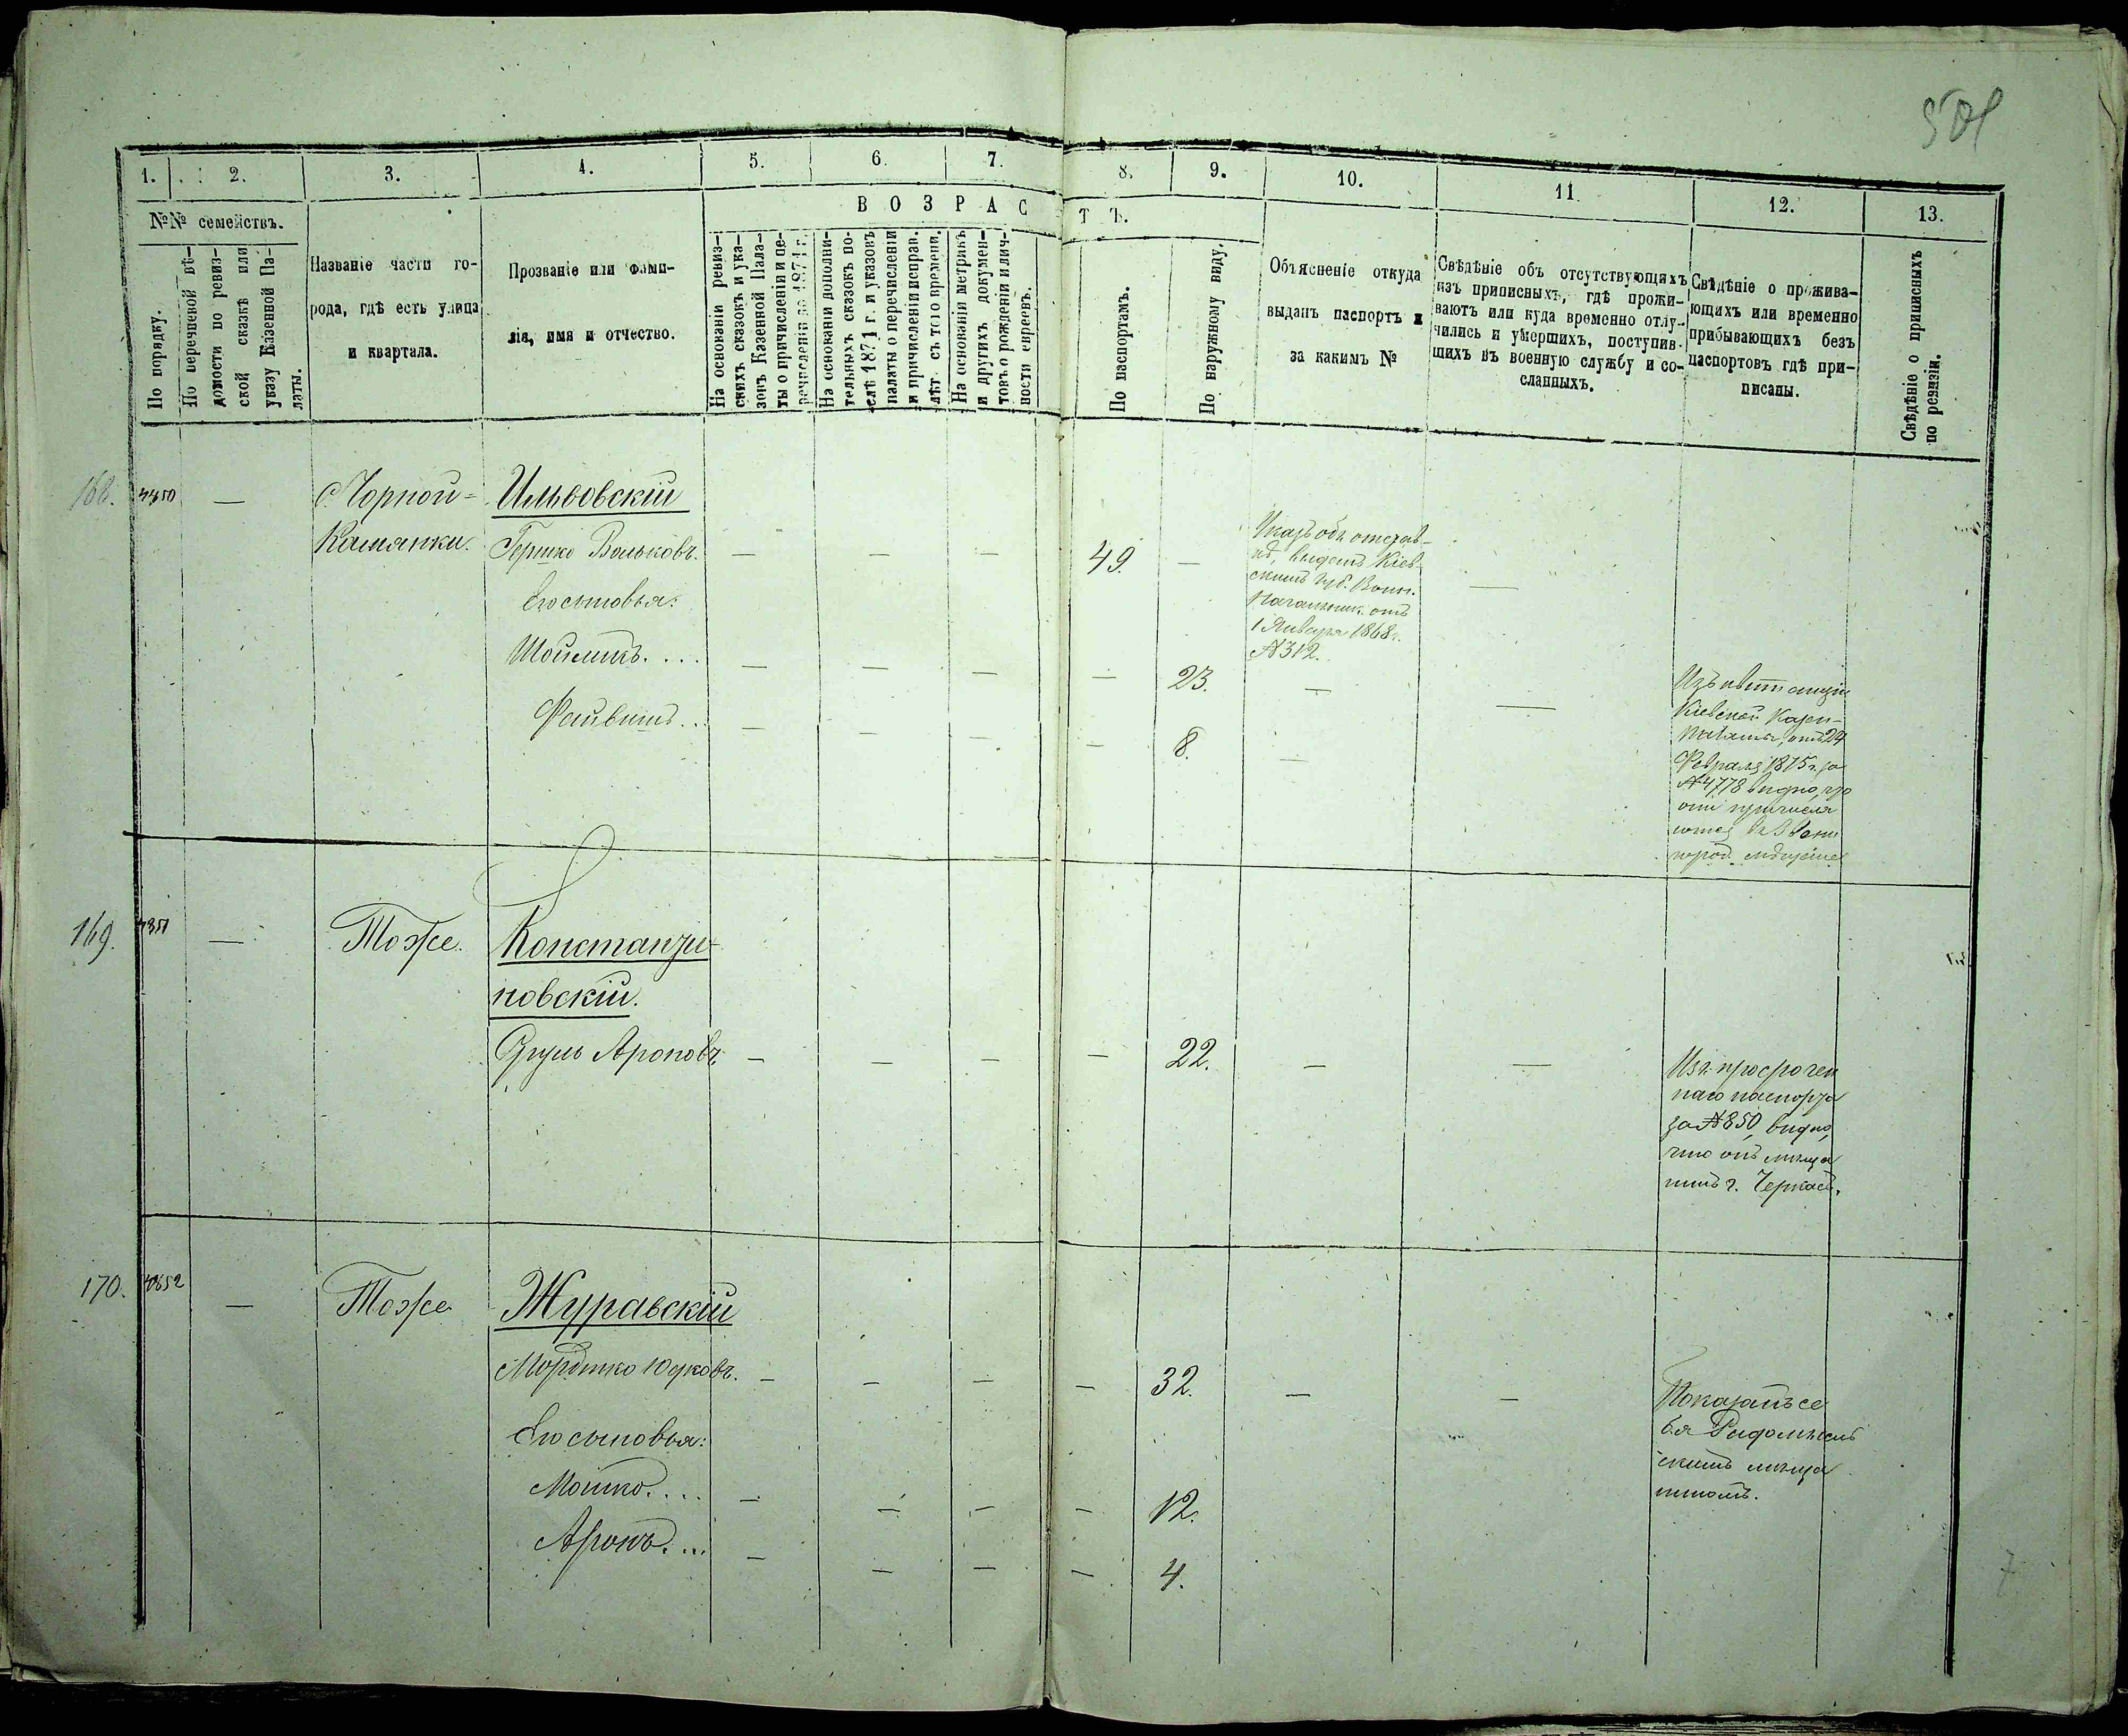 501
1.
2.
3.
4.
5.
6.
7.
8.
9.
10.
11.
12.
13.
№№ семействъ.
ВОЗРАС
ТЪ.
По порядку.
По перечневой вѣ-
домости по ревиз-
ской сказкѣ или
указу Казенной Па-
латы.
Названіе части го-
рода, гдѣ есть улица
и квартала.
Прозваніе или фами-
лія, имя и отчество.
На основаніи ревиз-
скихъ сказокъ и ука-
зовъ Казенной Пала-
ты о причисленіи и пе-
речисленіи до 1871 г.
На основаніи дополни-
тельныхъ сказокъ по-
слѣ 1871 г. и указовъ
палаты о перечисленіи
и причисленіи исправ.
лѣт съ того времени.
На основаніи метрикъ
и другихъ докумен-
товъ о рожденіи и лич-
ности евреевъ.
По паспортамъ.
По наружному виду.
Объясненіе откуда
выданъ паспортъ и
за какимъ №
Свѣдѣніе объ отсутствующихъ
изъ приписныхъ, гдѣ прожи-
ваютъ или куда временно отлу-
чились и умершихъ, поступив-
шихъ въ военную службу и со-
сланныхъ.
Свѣдѣніе о прожива-
ющихъ или временно
прибывающихъ безъ
паспортовъ гдѣ при-
писаны.
Свѣдѣніе о приписныхъ
по ревизіи.
168.
—
Чорной-
Камянки.
Ильвовскій
Гершко Вольковъ. — — — 49. —
Указъ объ отстав-
кѣ, выданъ Кіев-
скимъ Губ. Воин.
Начальник. отъ
1 Января 1868 г.
№ 312.
—
Его сыновья:
Шоиликъ. . . . — — — — 23. — —
Файвишъ . . . — — — — 8. —
Изъ квитанціи
Кіевской Казен-
Палаты, отъ 24
Февраля 1875 г. за
№ 4778 видно, что
они причисля
ются
169. 4351 —
Тоже.
Константи-
новскій.
Сруль Ароновъ — — — — 22. — —
Изъ просрочен
наго паспорта
за № 850, видно,
что онъ мѣща
нинъ г. Черкасъ.
170. 4352 —
Тоже
Журавскій
Мордко Юдковъ. — — — — 32. — —
Показалъ се
бя Радомысль
скимъ мѣща
ниномъ.
Его сыновья:
Мошко. . . . — — — — 12.
Аронъ. . . . — — — — 4.
7